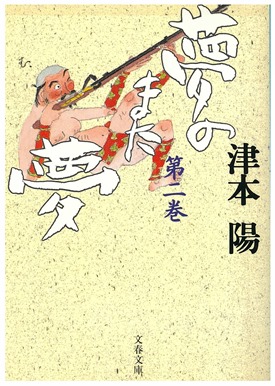 夢のまた夢
第二巻
津本 陽
文春文庫
む